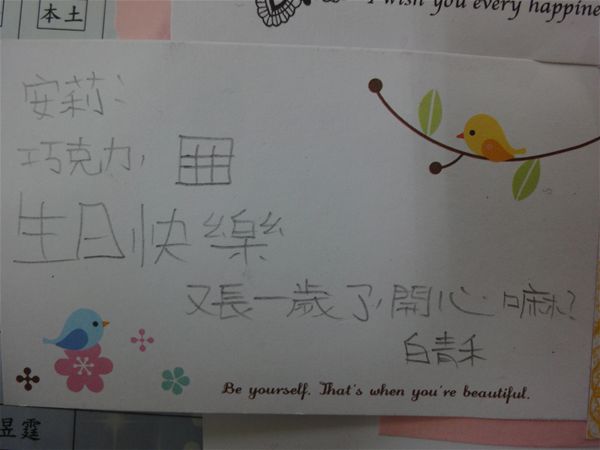 本土
I wish you every happine
安莉：
巧克力，
生日快樂
又長一歲了，開心嘛？
白青禾
Be yourself. That's when you're beautiful.
昱霆